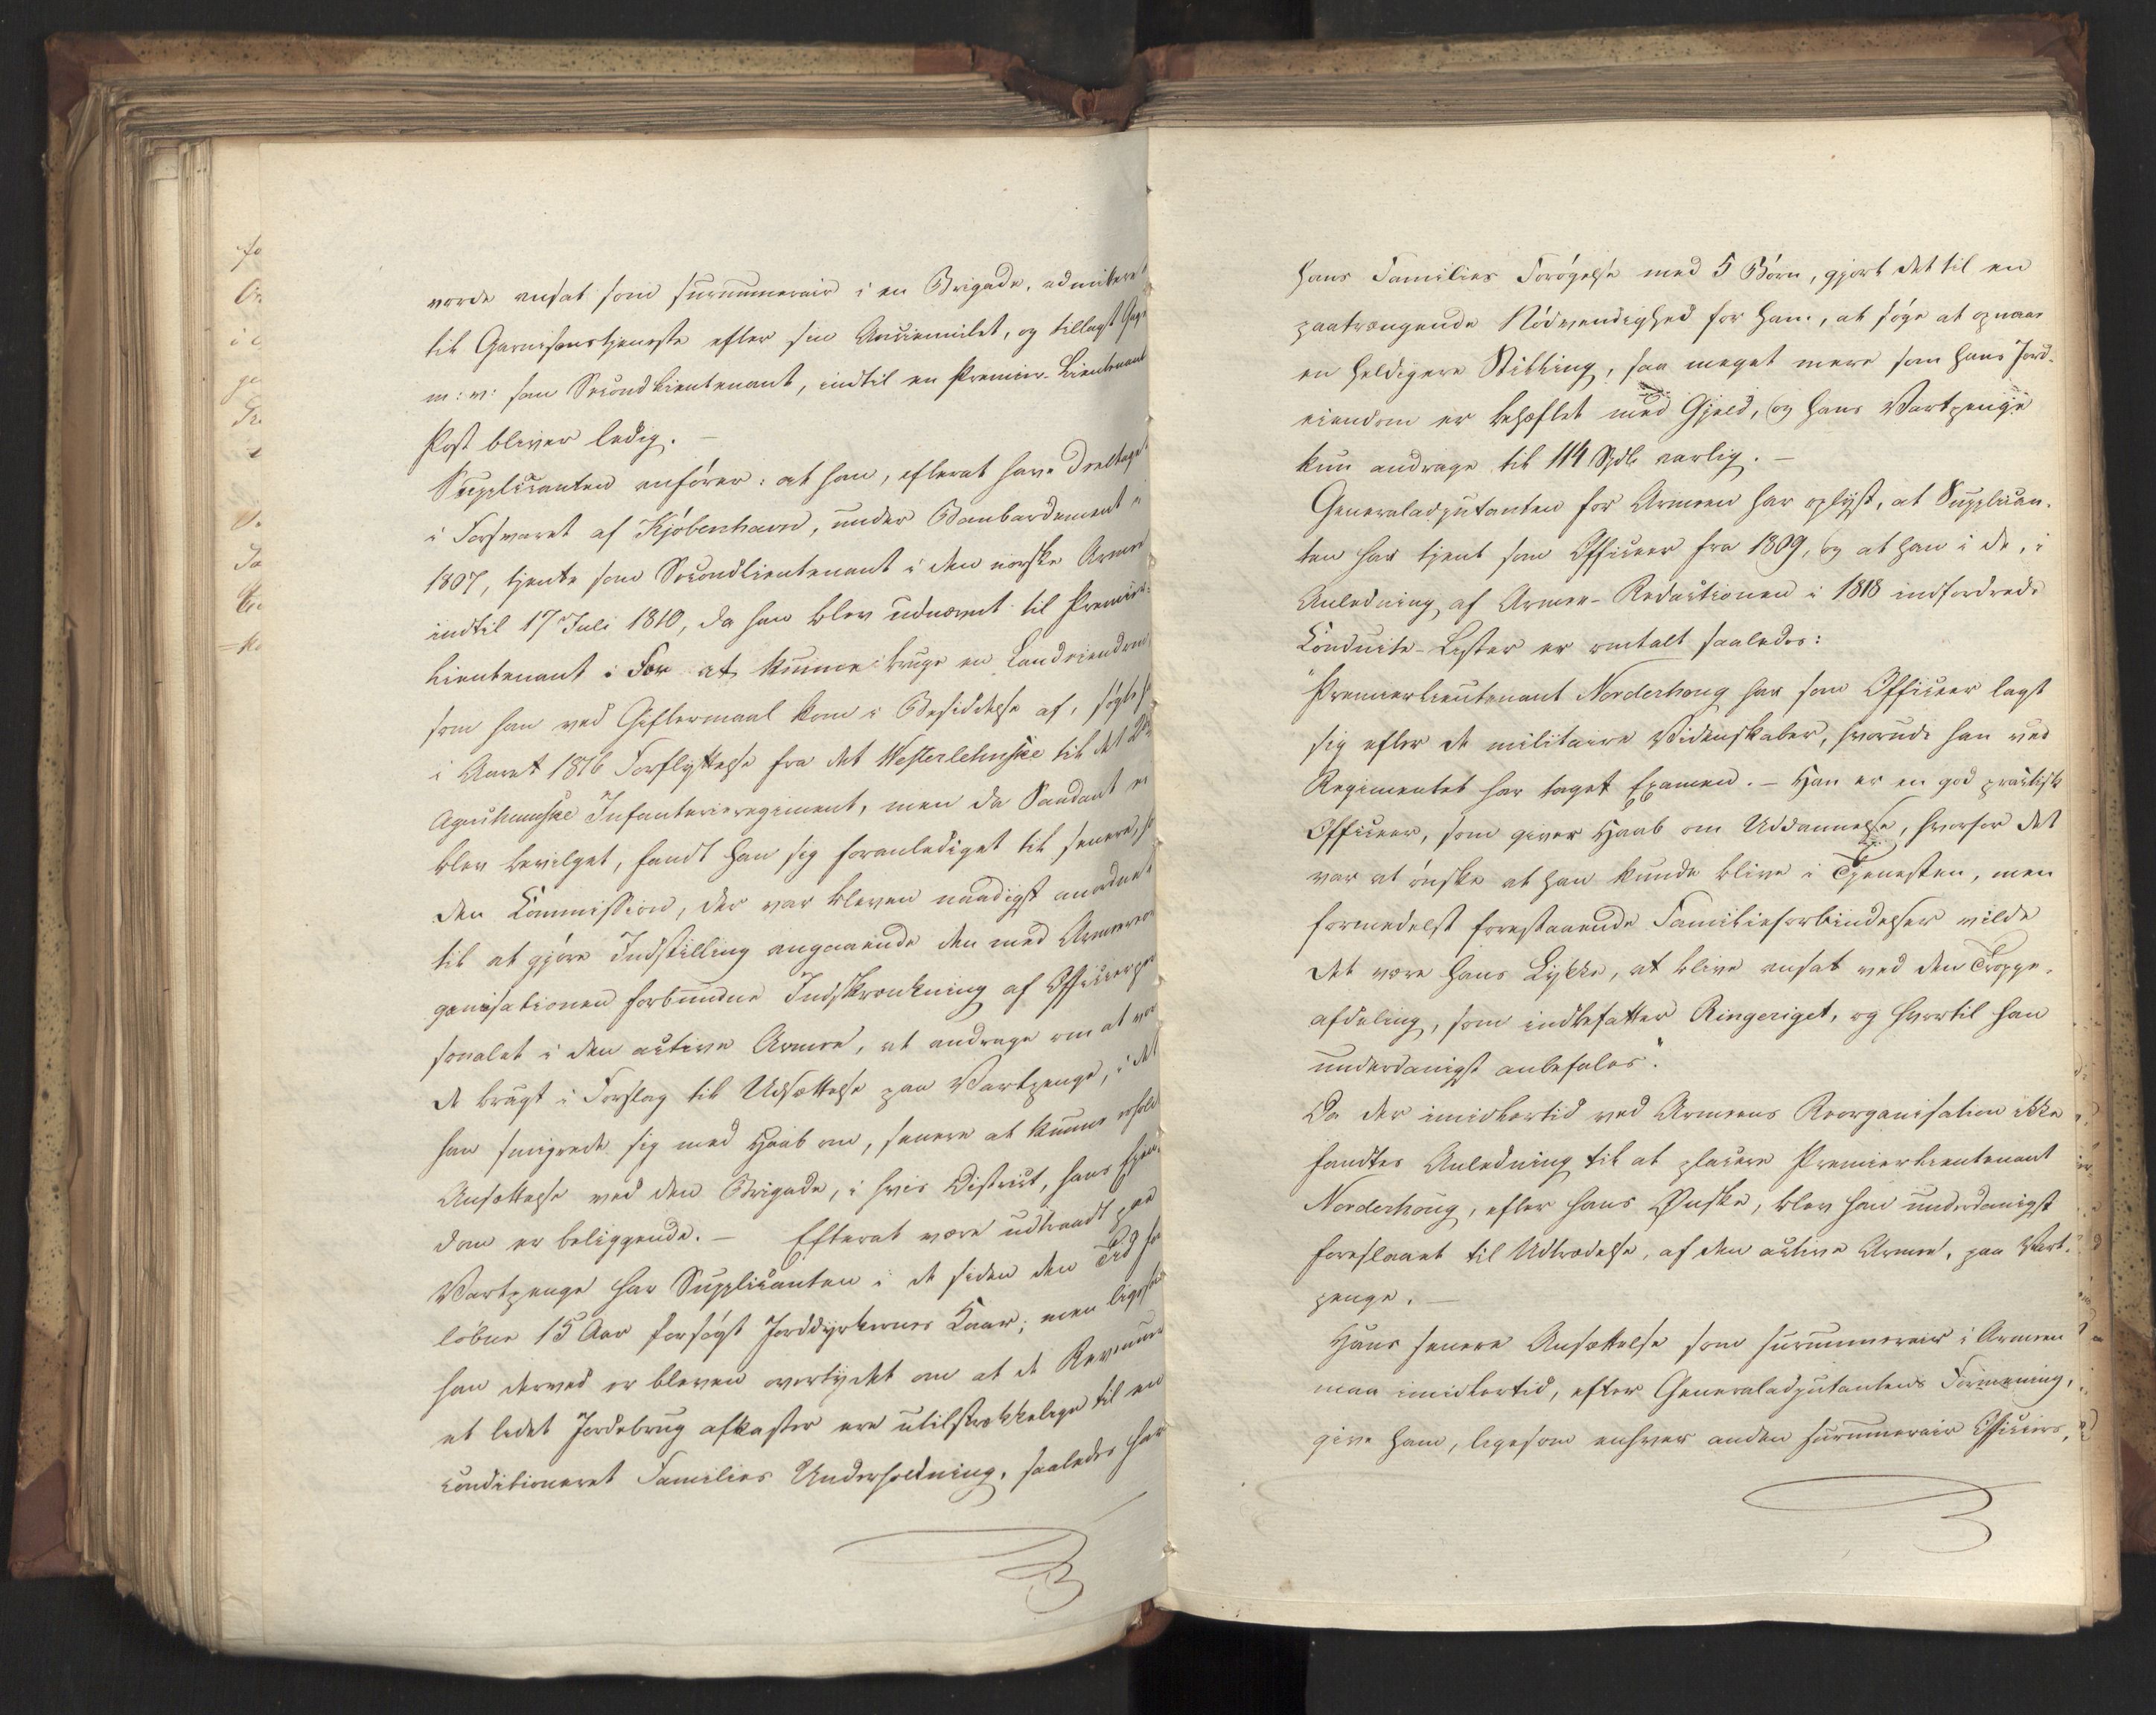 vorde ansat som surnumerair i en Brigade, admitteret
til Garnisonstjeneste efter sin Anciennitet, og tillagt Gage
m: v: som Secondlieutenant, indtil en Premier-Lieutenant
Post bliver ledig. –
Supplicanten anfører: at han, efterat have deeltaget
i Forsvaret af Kjöbenhavn, under Bombardement i
1807, tjente som Secondlieutenant i den norske Armee
indtil 17 Juli 1810, da han blev udnævnt til Premier-
lieutenant. For at kunne bruge en Landeiendom
som han ved Giftermaal kom i Besiddelse af, søgte han
i Aaret 1816 Forflyttelse fra det Westerlehnske til det 2det
Agershuusske Infanterieregiment, men da Saadant ei
blev bevilget, fandt han sig foranlediget til senere, hos
den Commission, der var bleven naadigst anordnet
til at gjøre Indstilling angaaende den med Armeeor-
ganisationen forbundne Indskrænkning af Officierper-
sonalet i den active Armee, at andrage om at vor-
de bragt i Forslag til Udsættelse paa Vartpenge, i det
han smigrede sig med Haab om, senere at kunne erholde
Ansættelse ved den Brigade, i hvis District, hans Eien-
dom er beliggende. – Efterat være udtraadt paa
Vartpenge har Supplicanten i de siden den Tid for-
løbne 15 Aar forsøgt Jorddyrkernes Kaar; men ligesom
han derved er bleven overtydet om at de Revenuer
et lidet Jordebrug afkaster ere utilstrækkelige til en
conditioneret Families Underholdning, saaledes har
hans Families Forøgelse med 5 Børn, gjort det til en
paatrængende Nödvendighed for ham, at søge at opnaae
en heldigere Stilling, saa meget mere som hans Jord-
eiendom er behæftet med Gjeld, og hans Vartpenge
kun andrage til 114 Spdl. aarlig. –
Generaladjutanten for Armeen har oplyst, at Supplican-
ten har tjent som Officeer fra 1809, og at han i de, i
Anledning af Armee-Reductionen i 1818 indfordrede
Conduite-Lister er omtalt saaledes:
"Premierlieutenant Norderhoug har som Officeer lagt
sig efter de militaire Videnskaber, hvorudi han ved
Regimentet har taget Examen. – Han er en god practisk
Officeer, som giver Haab om Uddannelse, hvorfor det
var at ønske at han kunde blive i Tjenesten, men
formedelst forestaaende Familieforbindelser vilde
det være hans Lykke, at blive ansat ved den Troppe-
afdeling, som indbefatter Ringeriget, og hvortil han
underdanigst anbefales."
Da der imidlertid ved Armeens Reorganisation ikke
fandtes Anledning til at placere Premierlieutenant
Norderhoug, efter hans Ønske, blev han underdanigst
foreslaaet til Udtrædelse, af den active Armee, paa Vart-
penge. –
Hans senere Ansættelse som surnumerair i Armeen
maa imidlertid, efter Generaladjutantens Formening,
give ham, ligesom enhver anden surnumerair Officiers,